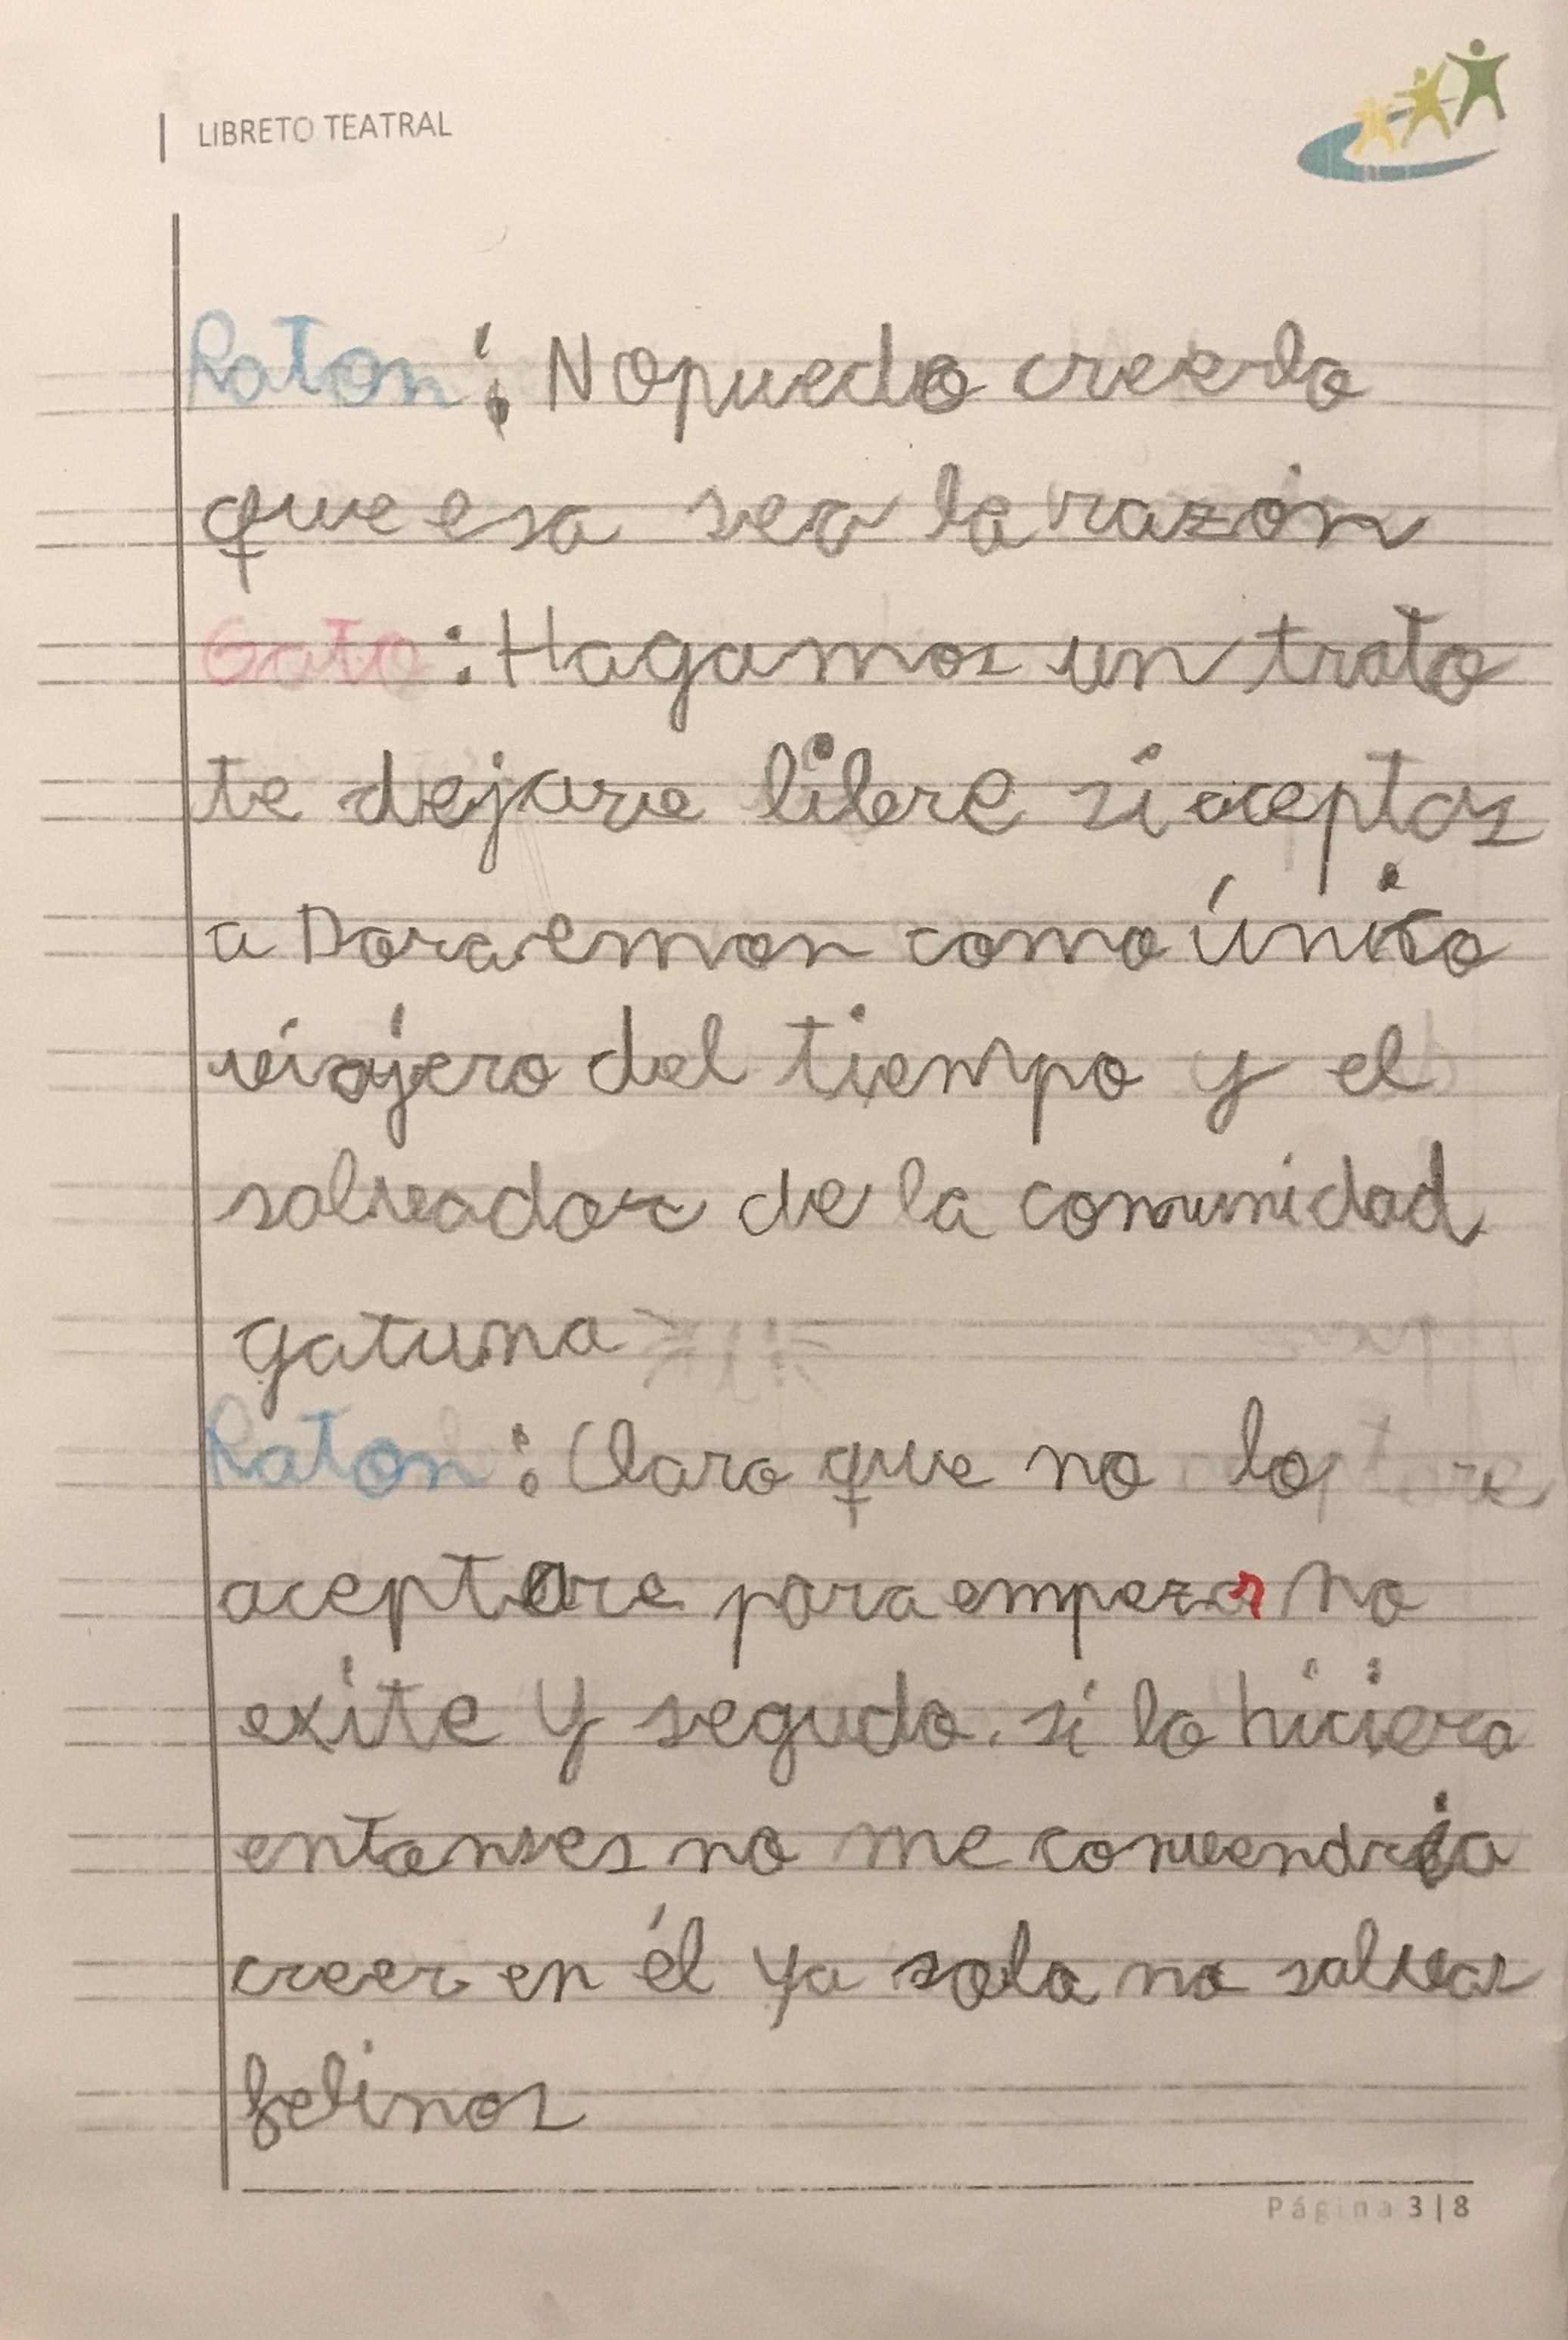 LIBRETO TEATRAL
Raton: No puedo creerlo
que esa sea la razón
Gato: Hagamos un trato
te dejare libre si aceptas
a Doraemon como único
viajero del tiempo y el
salvador de la comunidad
gatuna
Raton: Claro que no lo
aceptare para empezar no
exite y segudo. si lo hiciera
entonses no me convendria
creer en él ya solo no salvas
felinos
Página 3|8